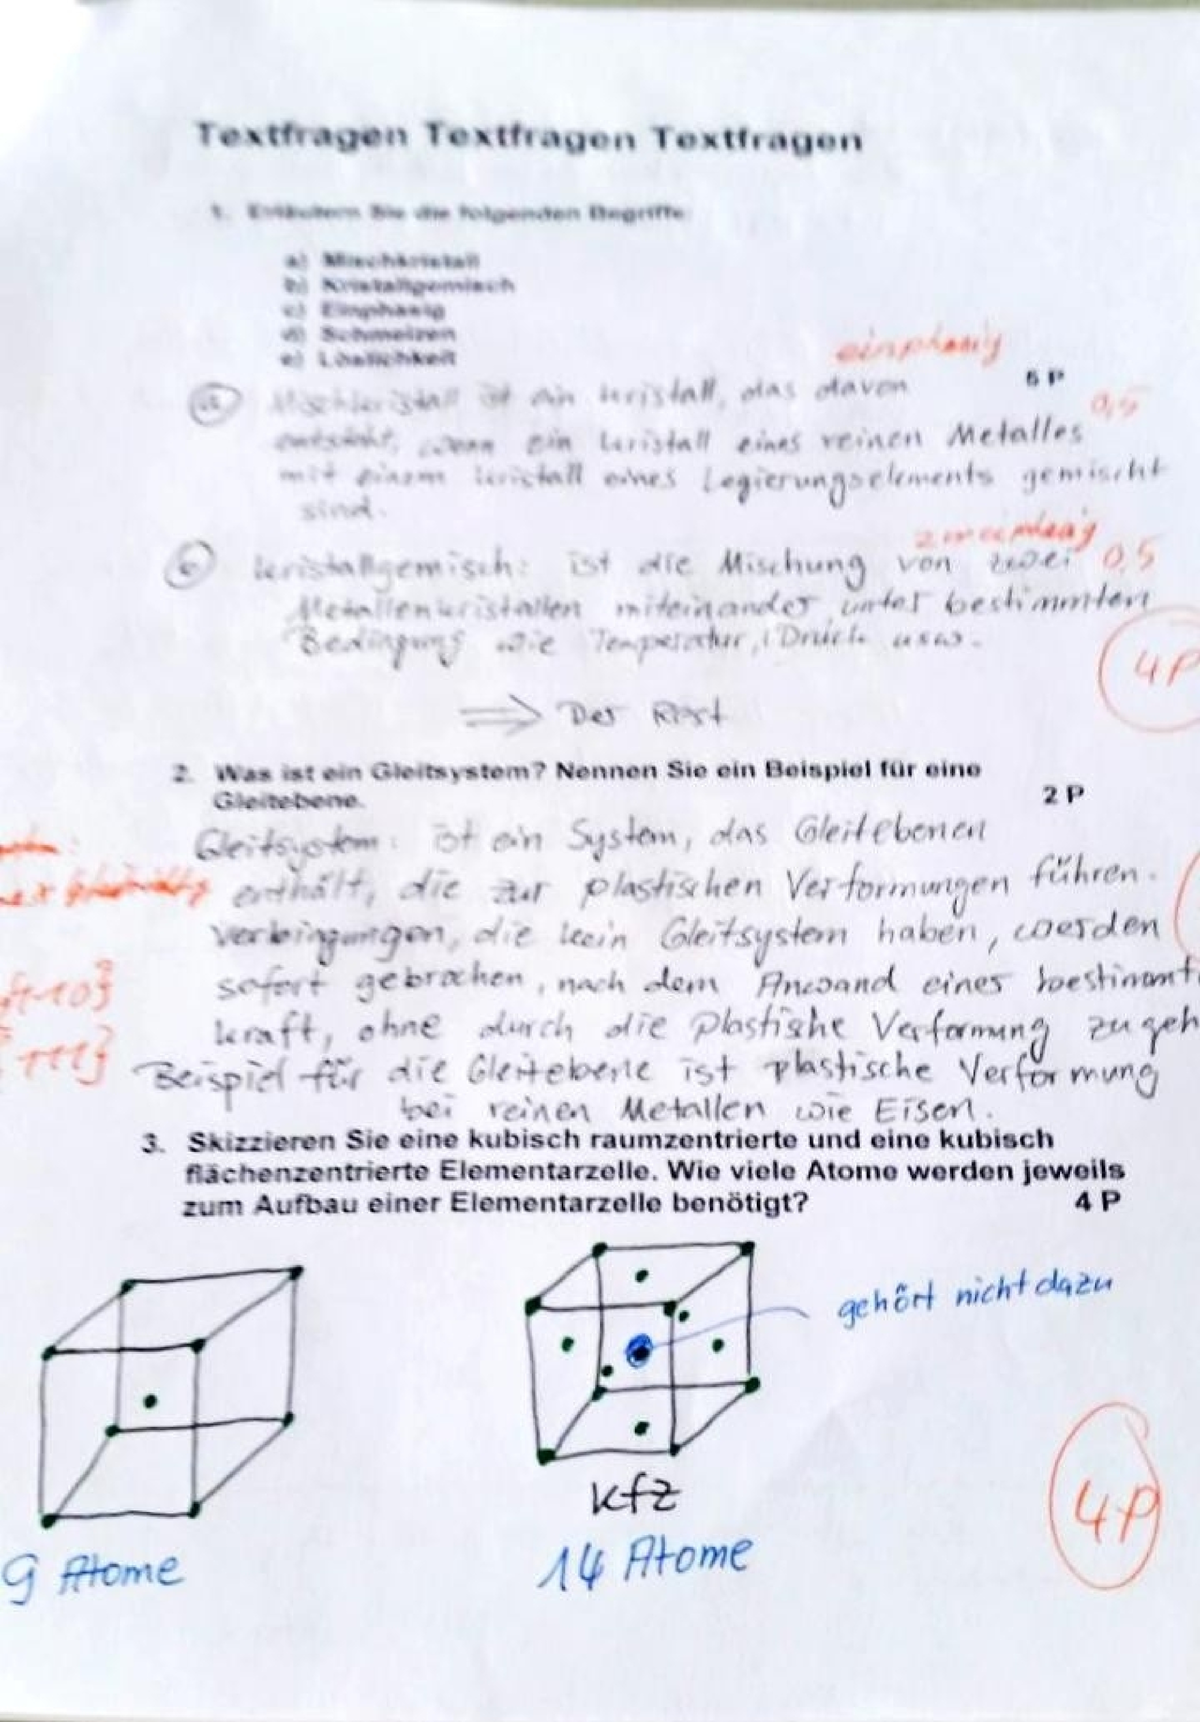 Textfragen Textfragen Textfragen
1. Erläutern Sie die folgenden Begriffe:
a) Mischkristall
b) Kristallgemisch
c) Einphasig
d) Schmelzen
e) Löslichkeit
einphasig
5 P
a) Mischkristall ist ein kristall, das davon
0,5
entsteht, wenn ein kristall eines reinen Metalles
mit einem kristall eines Legierungselements gemischt
sind.
zweiphasig
b) kristallgemisch: ist die Mischung von zwei
0,5
Metallenkristallen miteinander unter bestimmten
Bedingung wie Temperatur, Druck usw.
4P
⇒ Der Rest
2. Was ist ein Gleitsystem? Nennen Sie ein Beispiel für eine
Gleitebene.
2 P
Gleitsystem: ist ein System, das Gleitebenen
enthält, die zur plastischen Verformungen führen.
verbingungen, die kein Gleitsystem haben, werden
sofort gebrochen, nach dem Anwand eines bestimmt
kraft, ohne durch die Plastishe Verformung zu geh
110}
111}
Beispiel für die Gleitebene ist plastische Verformung
bei reinen Metallen wie Eisen.
3. Skizzieren Sie eine kubisch raumzentrierte und eine kubisch
flächenzentrierte Elementarzelle. Wie viele Atome werden jeweils
zum Aufbau einer Elementarzelle benötigt?
4 P
gehört nicht dazu
kfz
4P
9 Atome
14 Atome